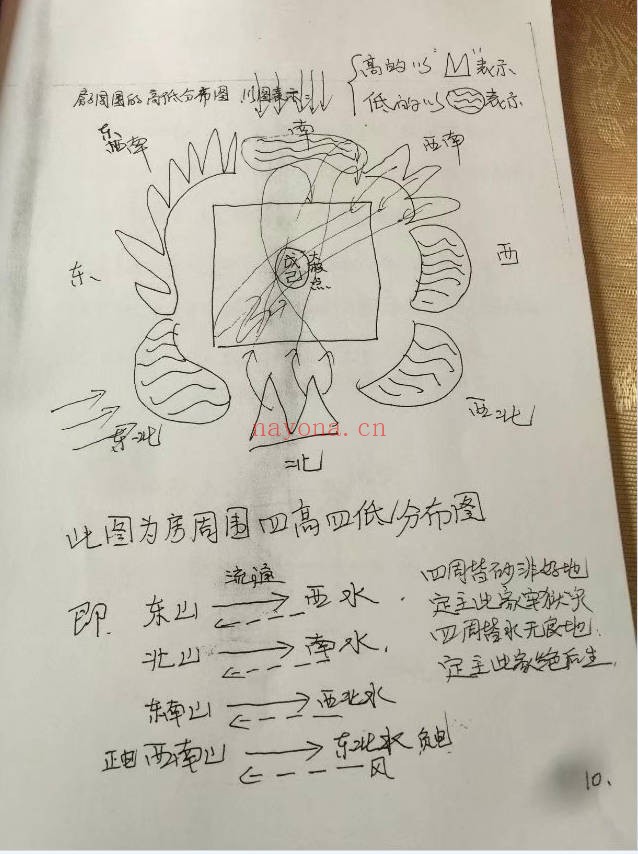 房周围的高低分布图 以图表示:
高的以"M"表示
低的以 表示
东南
南
西南
东
西
戊己
太极点
东北
西北
北
nayona.cn
此图为房周围四高四低分布图
流通
即. 东山 西水.
北山 南水.
东南山 西北水
正电 西南山 东北水 负电
风
四周皆砂非好地
定主此家牢狱灾
四周皆水无良地.
定主此家绝后生.
10.